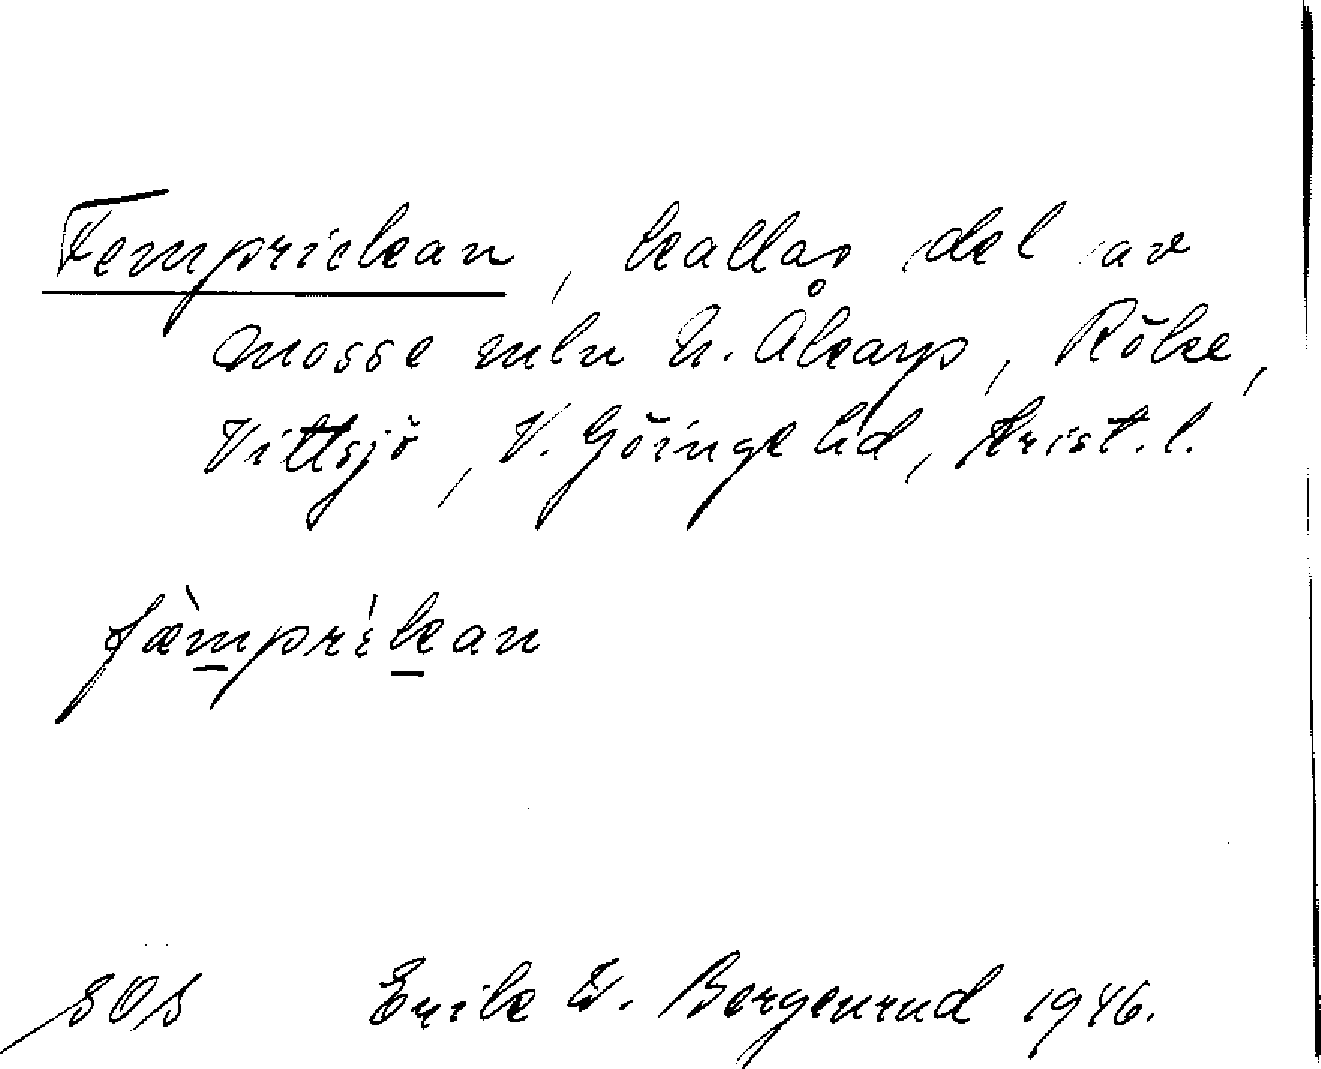 Femprickan, kallas del av
mosse mln N. Åkarp, Röke,
Vittsjö, V. Göinge hd, Krist. l.
fämprikan
SOS Erik W. Bergenrud 1946.